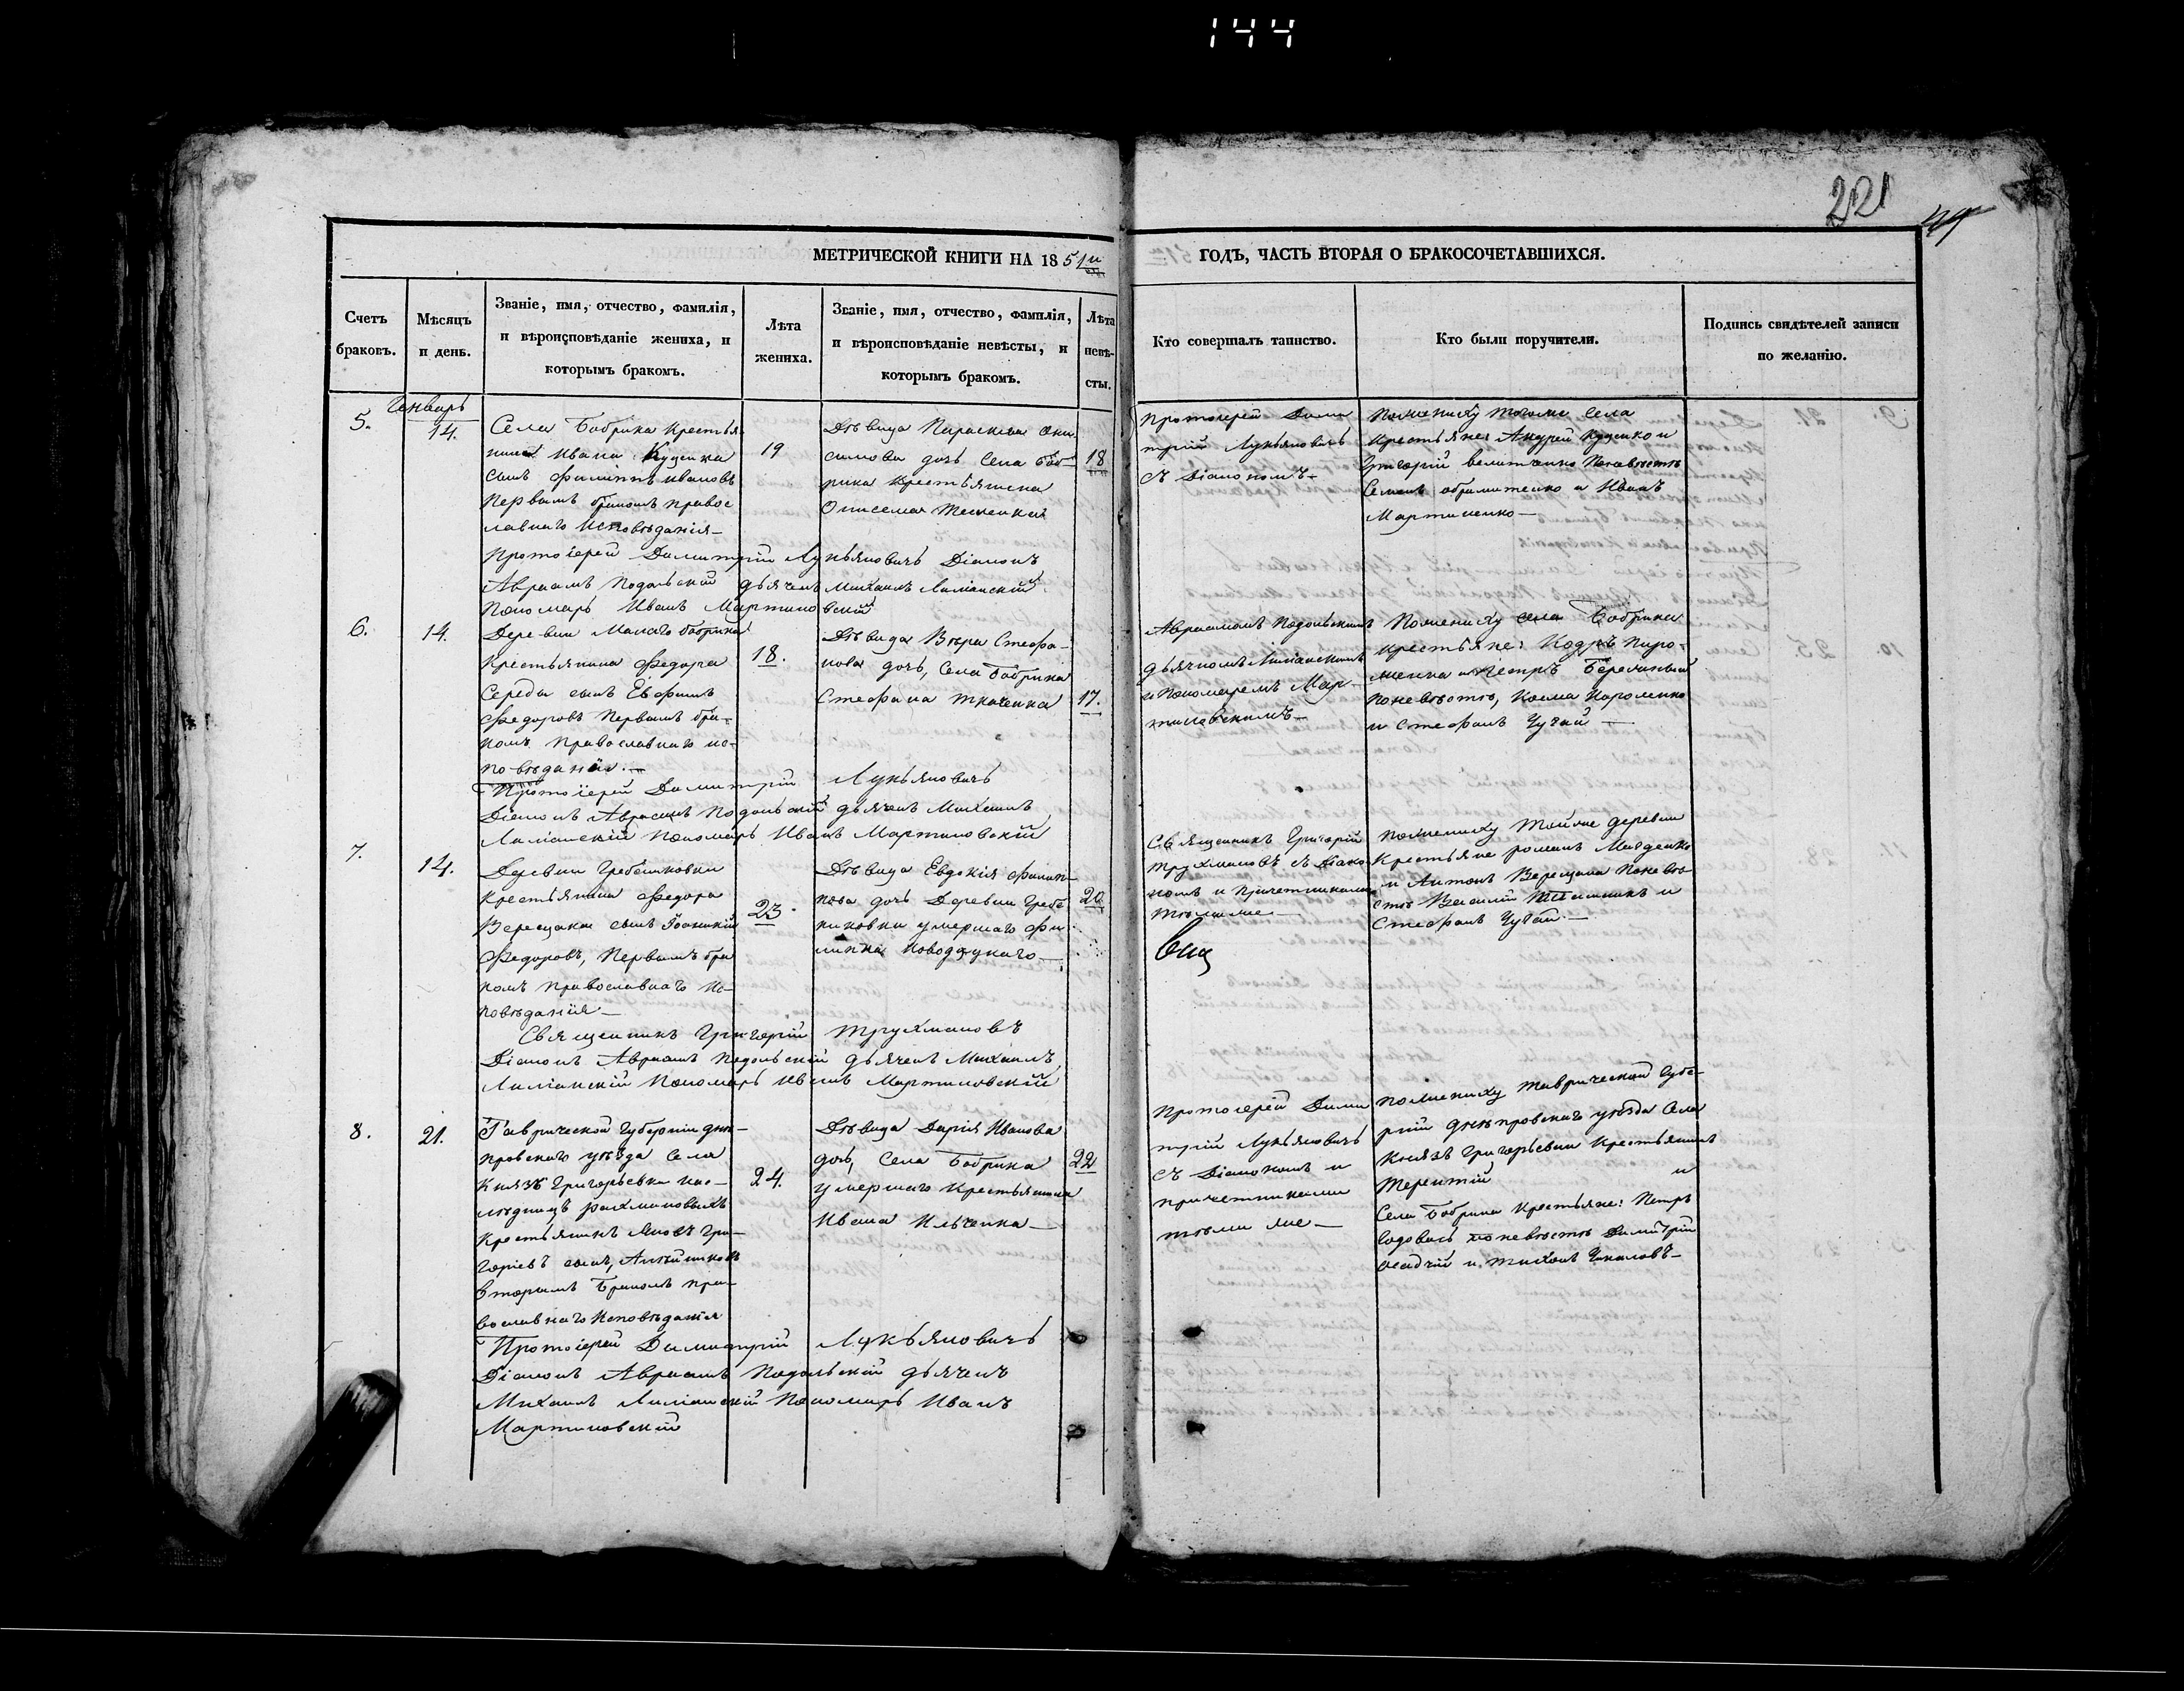 144
221
МЕТРИЧЕСКОЙ КНИГИ НА 1851й
ГОДЪ, ЧАСТЬ ВТОРАЯ О БРАКОСОЧЕТАВШИХСЯ.
Счетъ
браковъ.
Мѣсяцъ
и день.
Званіе, имя, отчество, фамилія,
и вѣроисповѣданіе жениха, и
которымъ бракомъ.
Лѣта
жениха.
Званіе, имя, отчество, фамилія,
и вѣроисповѣданіе невѣсты, и
которымъ бракомъ.
Лѣта
невѣ-
сты.
Кто совершалъ таинство.
Кто были поручители.
Подпись свидѣтелей записи
по желанію.
5.
Генварь
14.
Села Бобрика крестья
нина Ивана Куценка
сынъ Филиппъ Ивановъ
первымъ бракомъ правос
лавнаго исповѣданія
19
Дѣвица Параскева Они
симова дочь Села Боб
рика крестьянина
18
Протоіерей Дими
трій Лукьяновичь
съ Діакономъ
По жениху тогоже Села
крестьяне: Андрей Куценко и
Григорій Поневѣсте
Семенъ и Иванъ
Мартиненко
Протоіерей Димитрій Лукьяновичь Діаконъ
Авраамъ Подольскій дьячекъ Михаилъ Лиманскій
Пономарь Иванъ Мартиновскій
6.
14.
Деревни Малаго Бобрика
Крестьянина Федора
Середы сынъ Евфимъ
Федоровъ первымъ бра-
комъ православнаго ис-
повѣданія.
18.
Дѣвица Вѣра Стефа-
нова дочь, Села Бобрика
Стефана Ткаченка
17.
Авраамомъ Подольскимъ
дьячкомъ Лиманскимъ
и Пономаремъ Мар-
тиновскимъ
По жениху села Бобрика
крестьяне: Пиро-
женко и Петръ
поневѣсте, Косма Короленко
и Стефанъ Чучай
Протоіерей Димитрій Лукьяновичь
Діаконъ Авраамъ Подольскій дьячекъ Михаилъ
Лиманскій Пономарь Иванъ Мартиновскій
7.
14.
Деревни Гребениковки
крестьянина Федора
Верещаки сынъ Іоаникій
Федоровъ, первымъ бра
комъ православнаго ис-
повѣданія
23
Дѣвица Евдокія Филип-
пова дочь Деревни Гребе
никовки умершаго Фи
липпа
20
Священникъ Григорій
Трухмановъ съ діако
номъ и причетниками
тѣмиже
По жениху тойже деревни
крестьяне романъ
и Антонъ Верещака Поневѣ
сте Василій и
Стефанъ Чучай
Священникъ Григорій Трухмановъ
Діаконъ Авраамъ Подольскій дьячекъ Михаилъ
Лиманскій Пономарь Иванъ Мартиновскій
8.
21.
Таврической губерніи Дне-
провскаго уѣзда Села
Князь Григорьевки нас-
лѣдницъ рахмановыхъ
Крестьянинъ Яковъ Гри-
горіевъ сынъ,
вторымъ бракомъ пра-
вославнаго исповѣданія
24.
Дѣвица Дарія Иванова
дочь, Села Бобрика
умершаго крестьянина
Ивана Ильченка
22
Протоіерей Дими
трій Лукьяновичь
съ Діакономъ и
причетниками
тѣми же
По жениху Таврической губе-
рніи Днепровскаго уѣзда Села
Князь Григорьевки Крестьянинъ
Терентій и
Села Бобрика крестьяне: Петръ
поневѣсте Димитрій
Осадчій и Тихонъ
Протоіерей Димитрій Лукьяновичь
Діаконъ Авраамъ Подольскій дьячекъ
Михаилъ Лиманскій Пономарь Иванъ
Мартиновскій